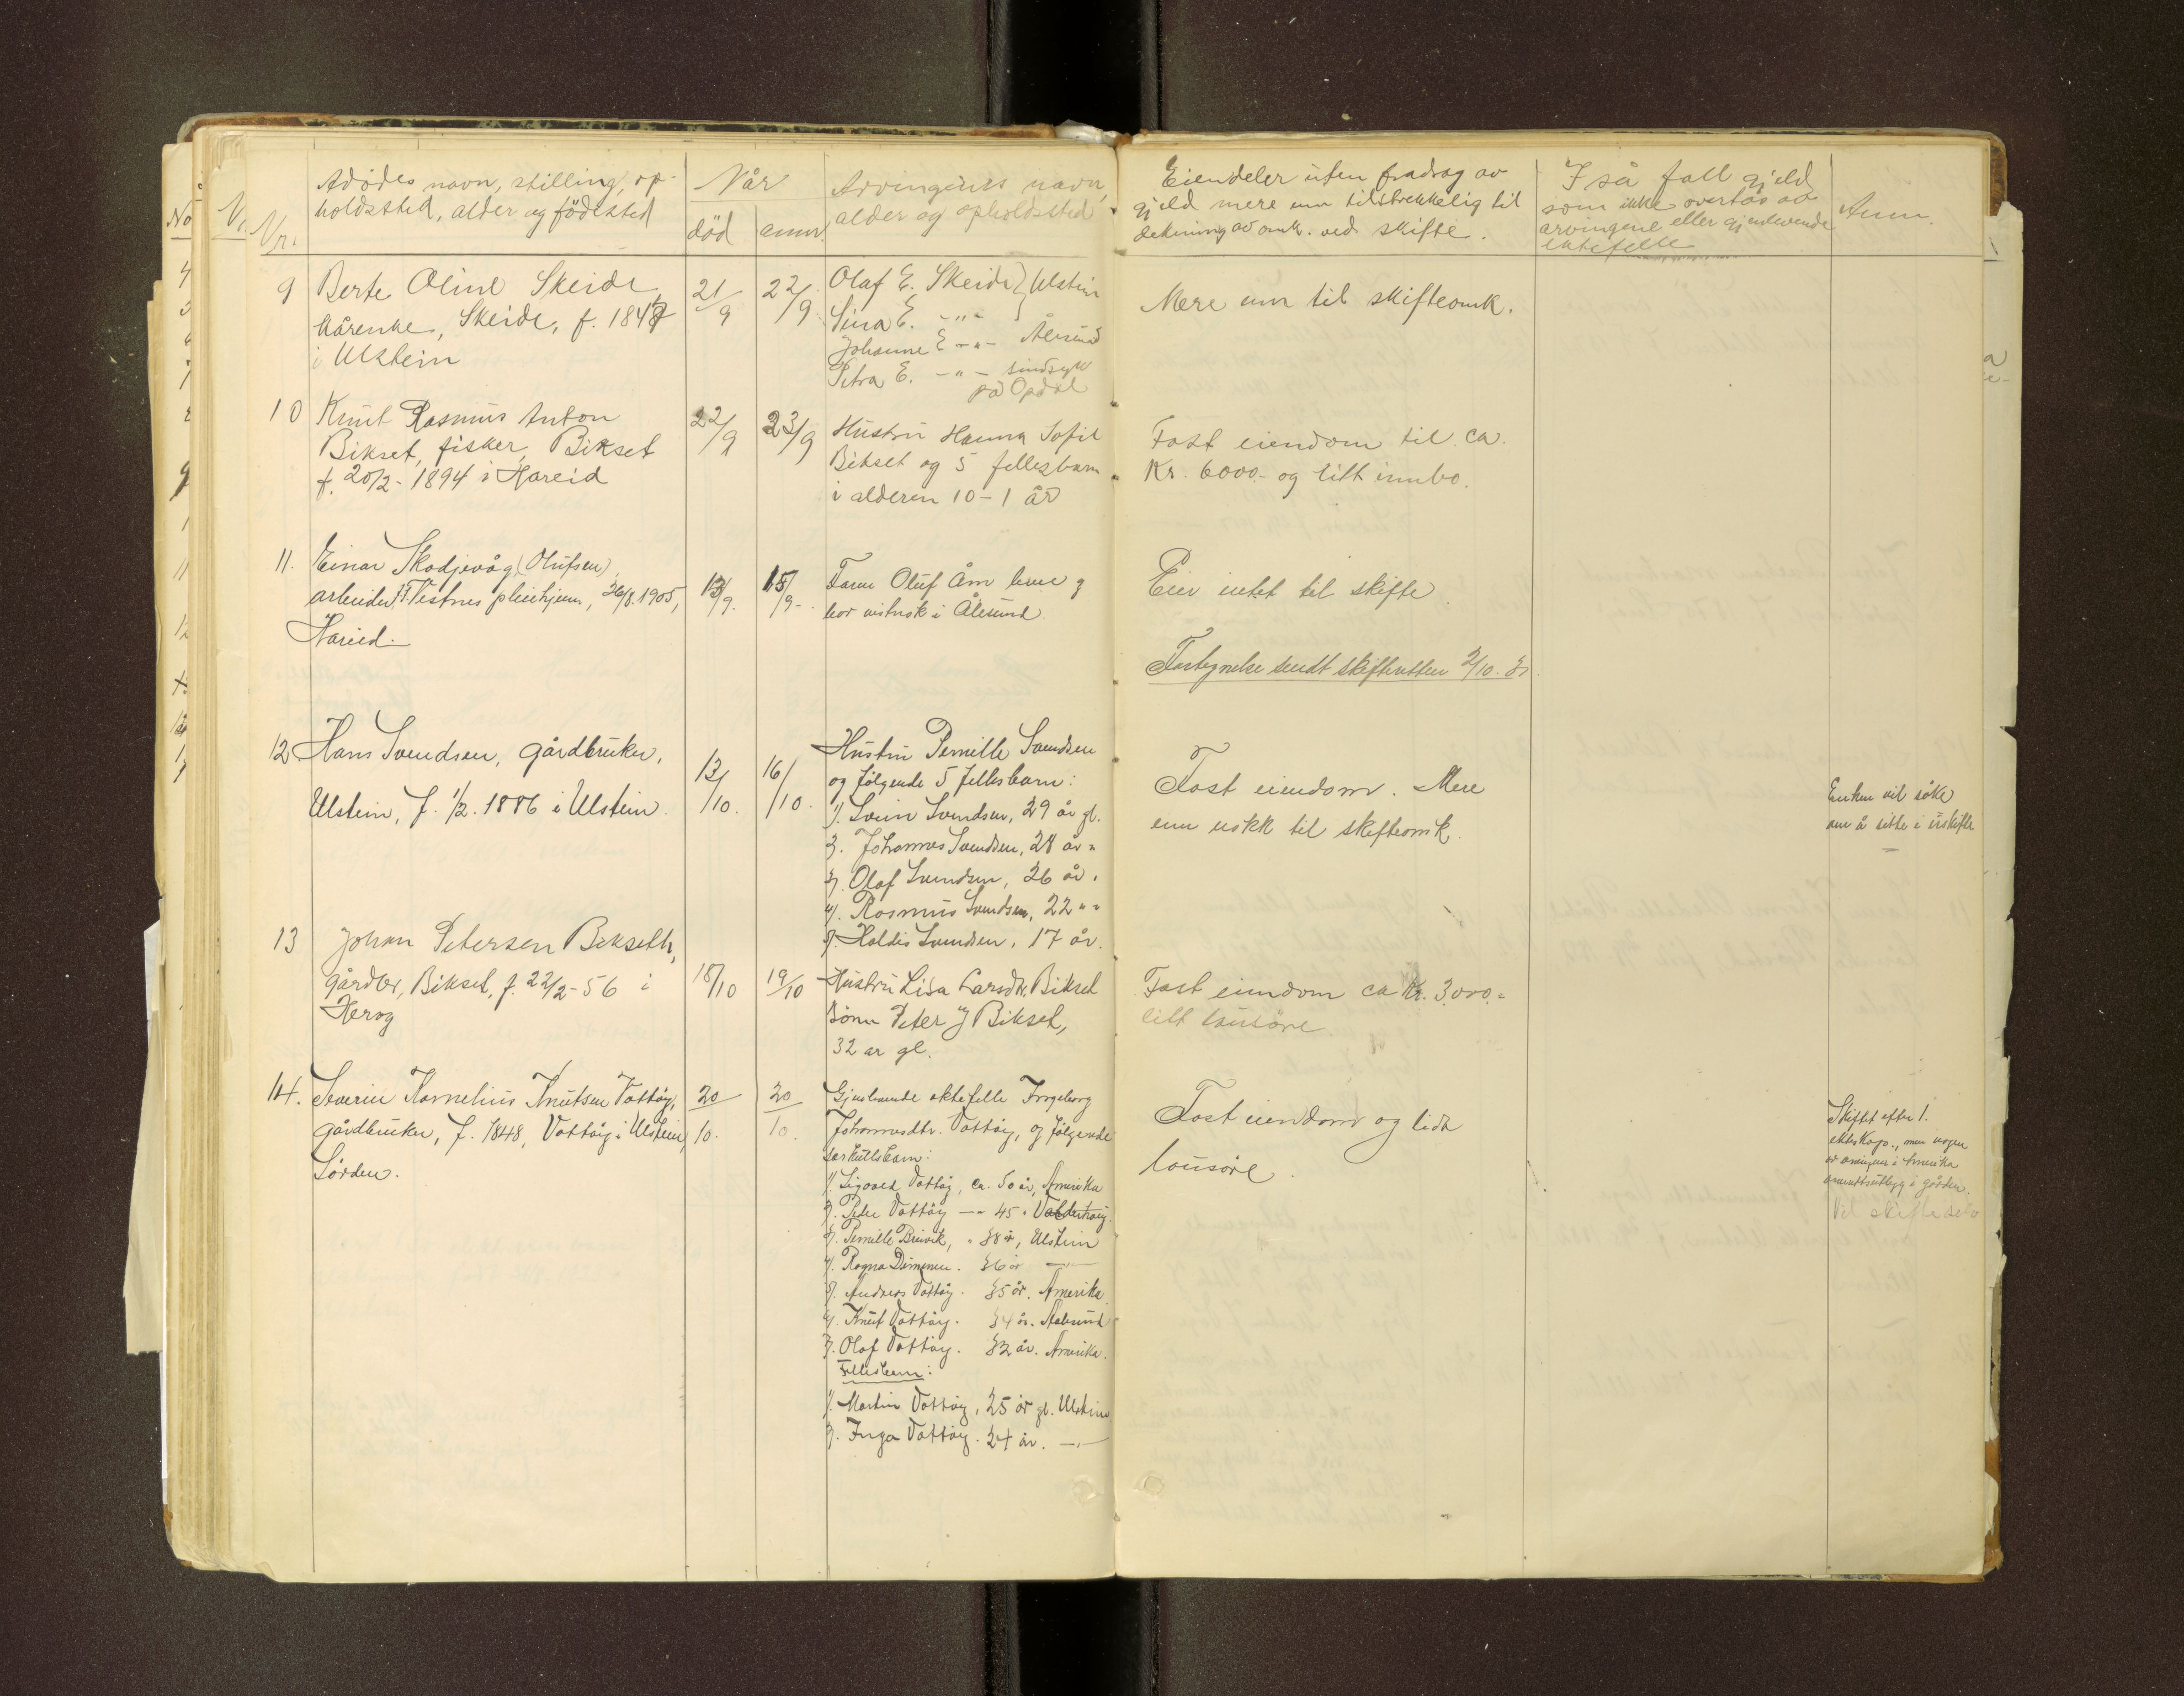 Nr.
Avdødes navn, stilling, op-
holdssted, alder og fødested
Når
død
anm.
Arvingenes navn,
alder og opholdssted
Eiendeler uten fradrag av
gjeld mere enn tilstrekkelig til
dekning av omk. ved skifte.
I så fall gjeld
som ikke overtas av
arvingene eller gjenlevende
ektefelle
Anm.
9
Berte Oline Skeide
kårenke, Skeide, f. 1847
i Ulstein
21/9
22/9
Olaf E. Skeide } Ulstein
Sina E. -"-
Johanne E -"- Ålesund
Petra E. -"- sindsyk
på Opdal
Mere enn til skifteomk.
10
Knut Rasmus Anton
Bikset, fisker, Bikset
f. 20/2 - 1894 i Hareid
22/9
23/9
Hustru Hanna Sofie
Bikset og 5 fellesbarn
i alderen 10 - 1 år
Fast eiendom til ca.
Kr. 6000.- og litt innbo.
11.
Einar Skodjevåg (Olufsen)
arbeider, Vestnes pleiehjem, 26/8. 1905,
Hareid.
13/9.
15/9.
Faren Oluf Åm lever og
bor i Ålesund.
Eier intet til skifte
sendt skifteretten 2/10. 31
12
Hans Svendsen, gårdbruker,
Ulstein, f. 1/2. 1886 i Ulstein.
13/10.
16/10.
Hustru Pernille Svendsen
og følgende 5 fellesbarn:
1). Svein Svendsen, 29 år gl.
2. Johannes Svendsen, 28 år "
3). Olaf Svendsen, 26 år "
4). Rasmus Svendsen, 22 " "
5). Haldis Svendsen, 17 år.
Fast eiendom. Mere
enn nokk til skifteomk.
Enken vil søke
om å sitte i uskifte
13
Johan Petersen Bikseth,
gårdbr, Bikset, f. 22/2 - 56 i
Herøy
18/10
19/10
Hustru Lisa Larsdtr. Bikset
Sønn Peter J Bikset,
32 år gl.
Fast eiendom ca Kr. 3.000.-
litt lausøre.
14.
Severin Kornelius Knutsen Vattøy,
gårdbruker, f. 1848, Vattøy i Ulstein,
20/10.
20/10.
Gjenlevende ektefelle Ingeborg
Johannesdtr. Vattøy, og følgende
særkullsbarn:
1). Sigvald Vattøy, ca. 50 år, Amerika
2). Peder Vattøy -" 45 " Valderhaug.
3). Pernille Breivik, " 38 år, Ulstein
4). Ragna Dimmen. 36 år -"-
5). Anders Vattøy. 35 år. Amerika
6). Knut Vattøy. 34 år. Aalesund
7). Olaf Vattøy. 32 år. Amerika.
Fellesbarn:
1). Martin Vattøy, 25 år gl. Ulstein
2). Inga Vattøy. 24 år. -"-
Fast eiendom og lidt
lausøre.
Skiftet efter 1.
ekteskap, men nogen
av arvingene i Amerika
i gården.
Vil skifte selv